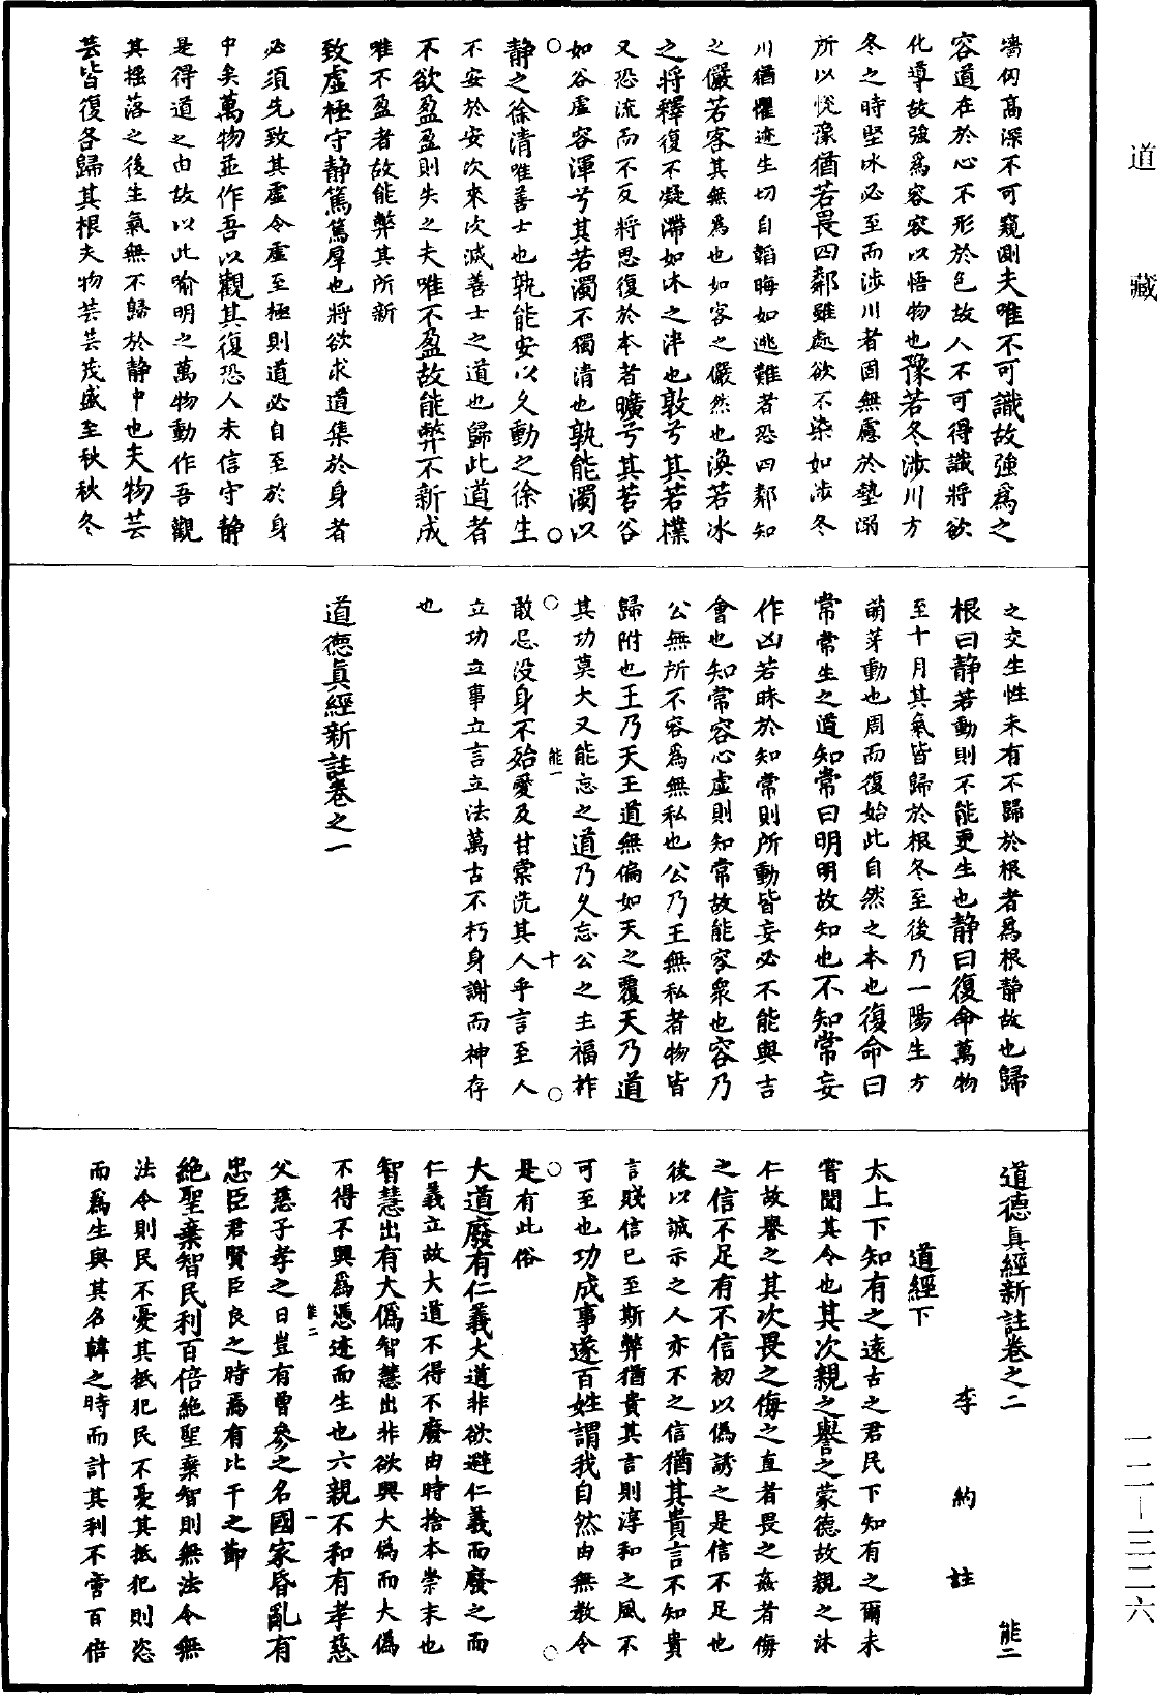 道藏
牆仞高深不可窺測夫唯不可識故強爲之
容道在於心不形於色故人不可得識將欲
化導故強爲容容以悟物也豫若冬涉川方
冬之時堅冰必至而涉川者固無慮於墊溺
所以悅豫猶若畏四鄰雖處欲不染如涉冬
川猶懼迹生切自韜晦如逃難者恐四鄰知
之儼若客其無爲也如客之儼然也渙若冰
之將釋復不凝滯如冰之泮也敦兮其若樸
又恐流而不反將思復於本者曠兮其若谷
如谷虛容渾兮其若濁不獨清也孰能濁以
靜之徐清唯善士也孰能安以久動之徐生
不安於安次來次減善士之道也歸此道者
不欲盈盈則失之夫唯不盈故能弊不新成
唯不盈者故能弊其所新
致虛極守靜篤篤厚也將欲求道集於身者
必須先致其虛令虛至極則道必自至於身
中矣萬物並作吾以觀其復恐人未信守靜
是得道之由故以此喻明之萬物動作吾觀
其搖落之後生氣無不歸於靜中也夫物芸
芸皆復各歸其根夫物芸芸茂盛至秋秋冬
之交生性未有不歸於根者爲根靜故也歸
根曰靜若動則不能更生也靜曰復命萬物
至十月其氣皆歸於根冬至後乃一陽生方
萌芽動也周而復始此自然之本也復命曰
常常生之道知常曰明明故知也不知常妄
作凶若昧於知常則所動皆妄必不能與吉
會也知常容心虛則知常故能容衆也容乃
公無所不容爲無私也公乃王無私者物皆
歸附也王乃天王道無偏如天之覆天乃道
其功莫大又能忘之道乃久忘公之主福祚
能一 十
敢忌没身不殆愛及甘棠況其人乎言至人
立功立事立言立法萬古不朽身謝而神存
也
道德眞經新註卷之一
道德眞經新註卷之二 能二
李約註
道經下
太上下知有之遠古之君民下知有之爾未
嘗聞其令也其次親之譽之蒙德故親之沐
仁故譽之其次畏之侮之直者畏之姦者侮
之信不足有不信初以僞誘之是信不足也
後以誠示之人亦不之信猶其貴言不知貴
言賤信已至斯弊猶貴其言則淳和之風不
可至也功成事遂百姓謂我自然由無敎令
是有此俗
大道廢有仁義大道非欲避仁義而廢之而
仁義立故大道不得不廢由時捨本崇末也
智慧出有大僞智慧出非欲興大僞而大僞
不得不興爲憑迹而生也六親不和有孝慈
能二 一
父慈子孝之日豈有曾參之名國家昏亂有
忠臣君賢臣良之時焉有比干之節
絶聖棄智民利百倍絶聖棄智則無法令無
法令則民不憂其抵犯民不憂其抵犯則恣
而爲生與其名韓之時而計其利不啻百倍
一二—三二六